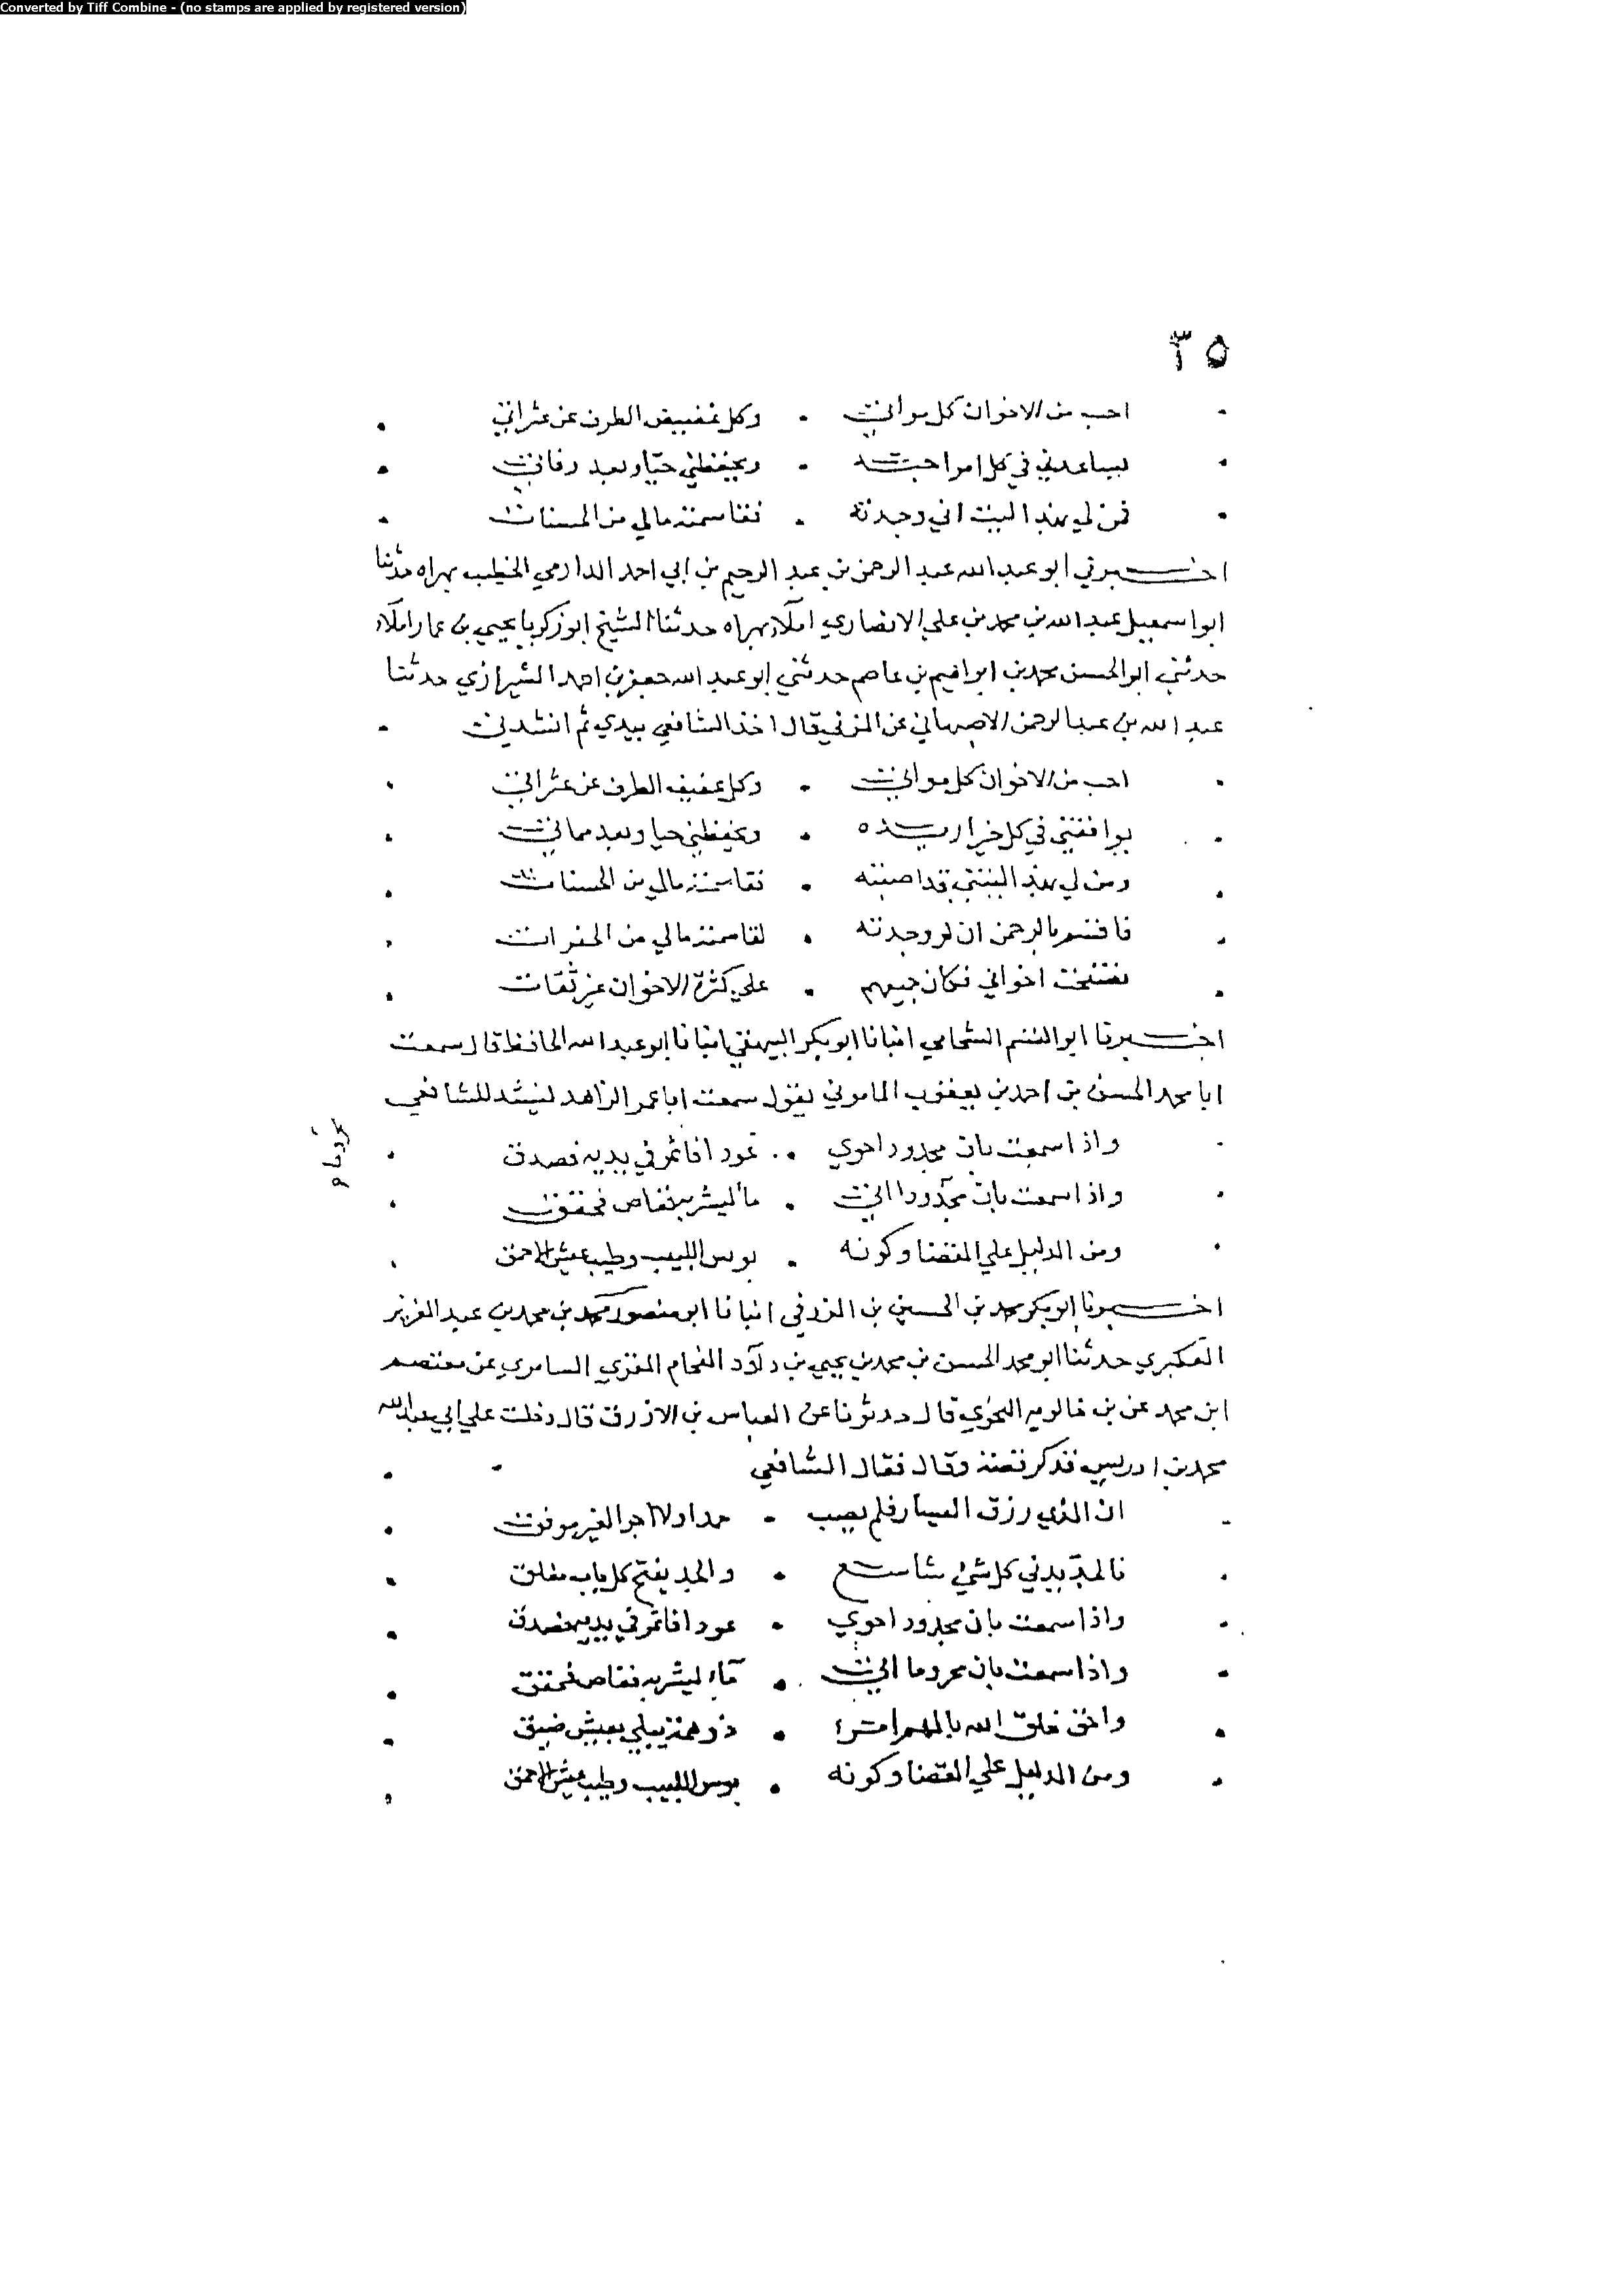 Converted by Tiff Combine - (no stamps are applied by registered version)
٣٥
احب من الاخوان كل مواتي . وكل غضيض الطرف عن عثراتي
يساعدني في كل امر احبه . ويحفظني حيا وبعد وفاتي
فمن لي بهذا ليت اني وجدته . فقاسمته مالي من الحسنات
اخبرني ابو عبد الله عبد الرحمن بن عبد الرحيم بن ابي احمد الدارمي الخطيب بهراه حدثنا
ابو اسمعيل عبد الله بن محمد بن علي الانصاري املاء بهراه حدثنا الشيخ ابو زكريا يحيي بن عمار املاء
حدثني ابو الحسن محمد بن ابراهيم بن عاصم حدثني ابو عبد الله جعفر بن احمد الشيرازي حدثنا
عبد الله بن عبد الرحمن الاصبهاني عن المزني قال اخذ الشافعي بيدي ثم انشدني
احب من الاخوان كل مواتي . وكل عفيف الطرف عن عثراتي
يوافقني في كل خير اريده . ويحفظني حيا وبعد مماتي
ومن لي بهذا ليتني قد اصبته . فقاسمته مالي من الحسنات
فاقسم بالرحمن ان لو وجدته . لقاسمته مالي من
اخواني فكان جميعهم . علي كثرة الاخوان غير ثقات
اخبرنا ابو القسم الشحامي انبانا ابو بكر البيهقي انبانا ابو عبد الله الحافظ قال سمعت
ابا محمد الحسن بن احمد بن يعقوب الماموني يقول سمعت ابا عمر الزاهد ينشد للشافعي
واذا سمعت بان مجدودا حوي . عودا فاثمر في يديه فصدق
واذا سمعت بان اتي . ماء ليشربه فغاص فحقق
ومن الدليل علي القضا وكونه . بوس اللبيب وطيب عيش الاحمق
اخبرنا ابو بكر محمد بن الحسين بن المزرفي انبانا ابو منصور محمد بن محمد بن عبد العزيز
العكبري حدثنا ابو محمد الحسن بن محمد بن يحيي بن داود الفحام المقري السامري عن معتصم
ابن محمد عن بن خالويه النحوي قال حدثونا عن العباس بن الازرق قال دخلت علي ابي عبد الله
محمد بن ادريس فذكر قصة وقال فقال الشافعي
ان الذي رزق اليسار فلم يصب . حمدا ولا اجرا لغير موفق
فالجد يدني كل شئ شاسع . والجد يفتح كل باب مغلق
واذا سمعت بان مجدودا حوي . عودا فاثمر في يديه فصدق
واذا سمعت بان محروما اتي . ماء ليشربه فغاص فحقق
واحق خلق الله بالهم امرؤ . ذو همة يبلي بعيش ضيق
ومن الدليل علي القضا وكونه . بوس اللبيب وطيب عيش الاحمق